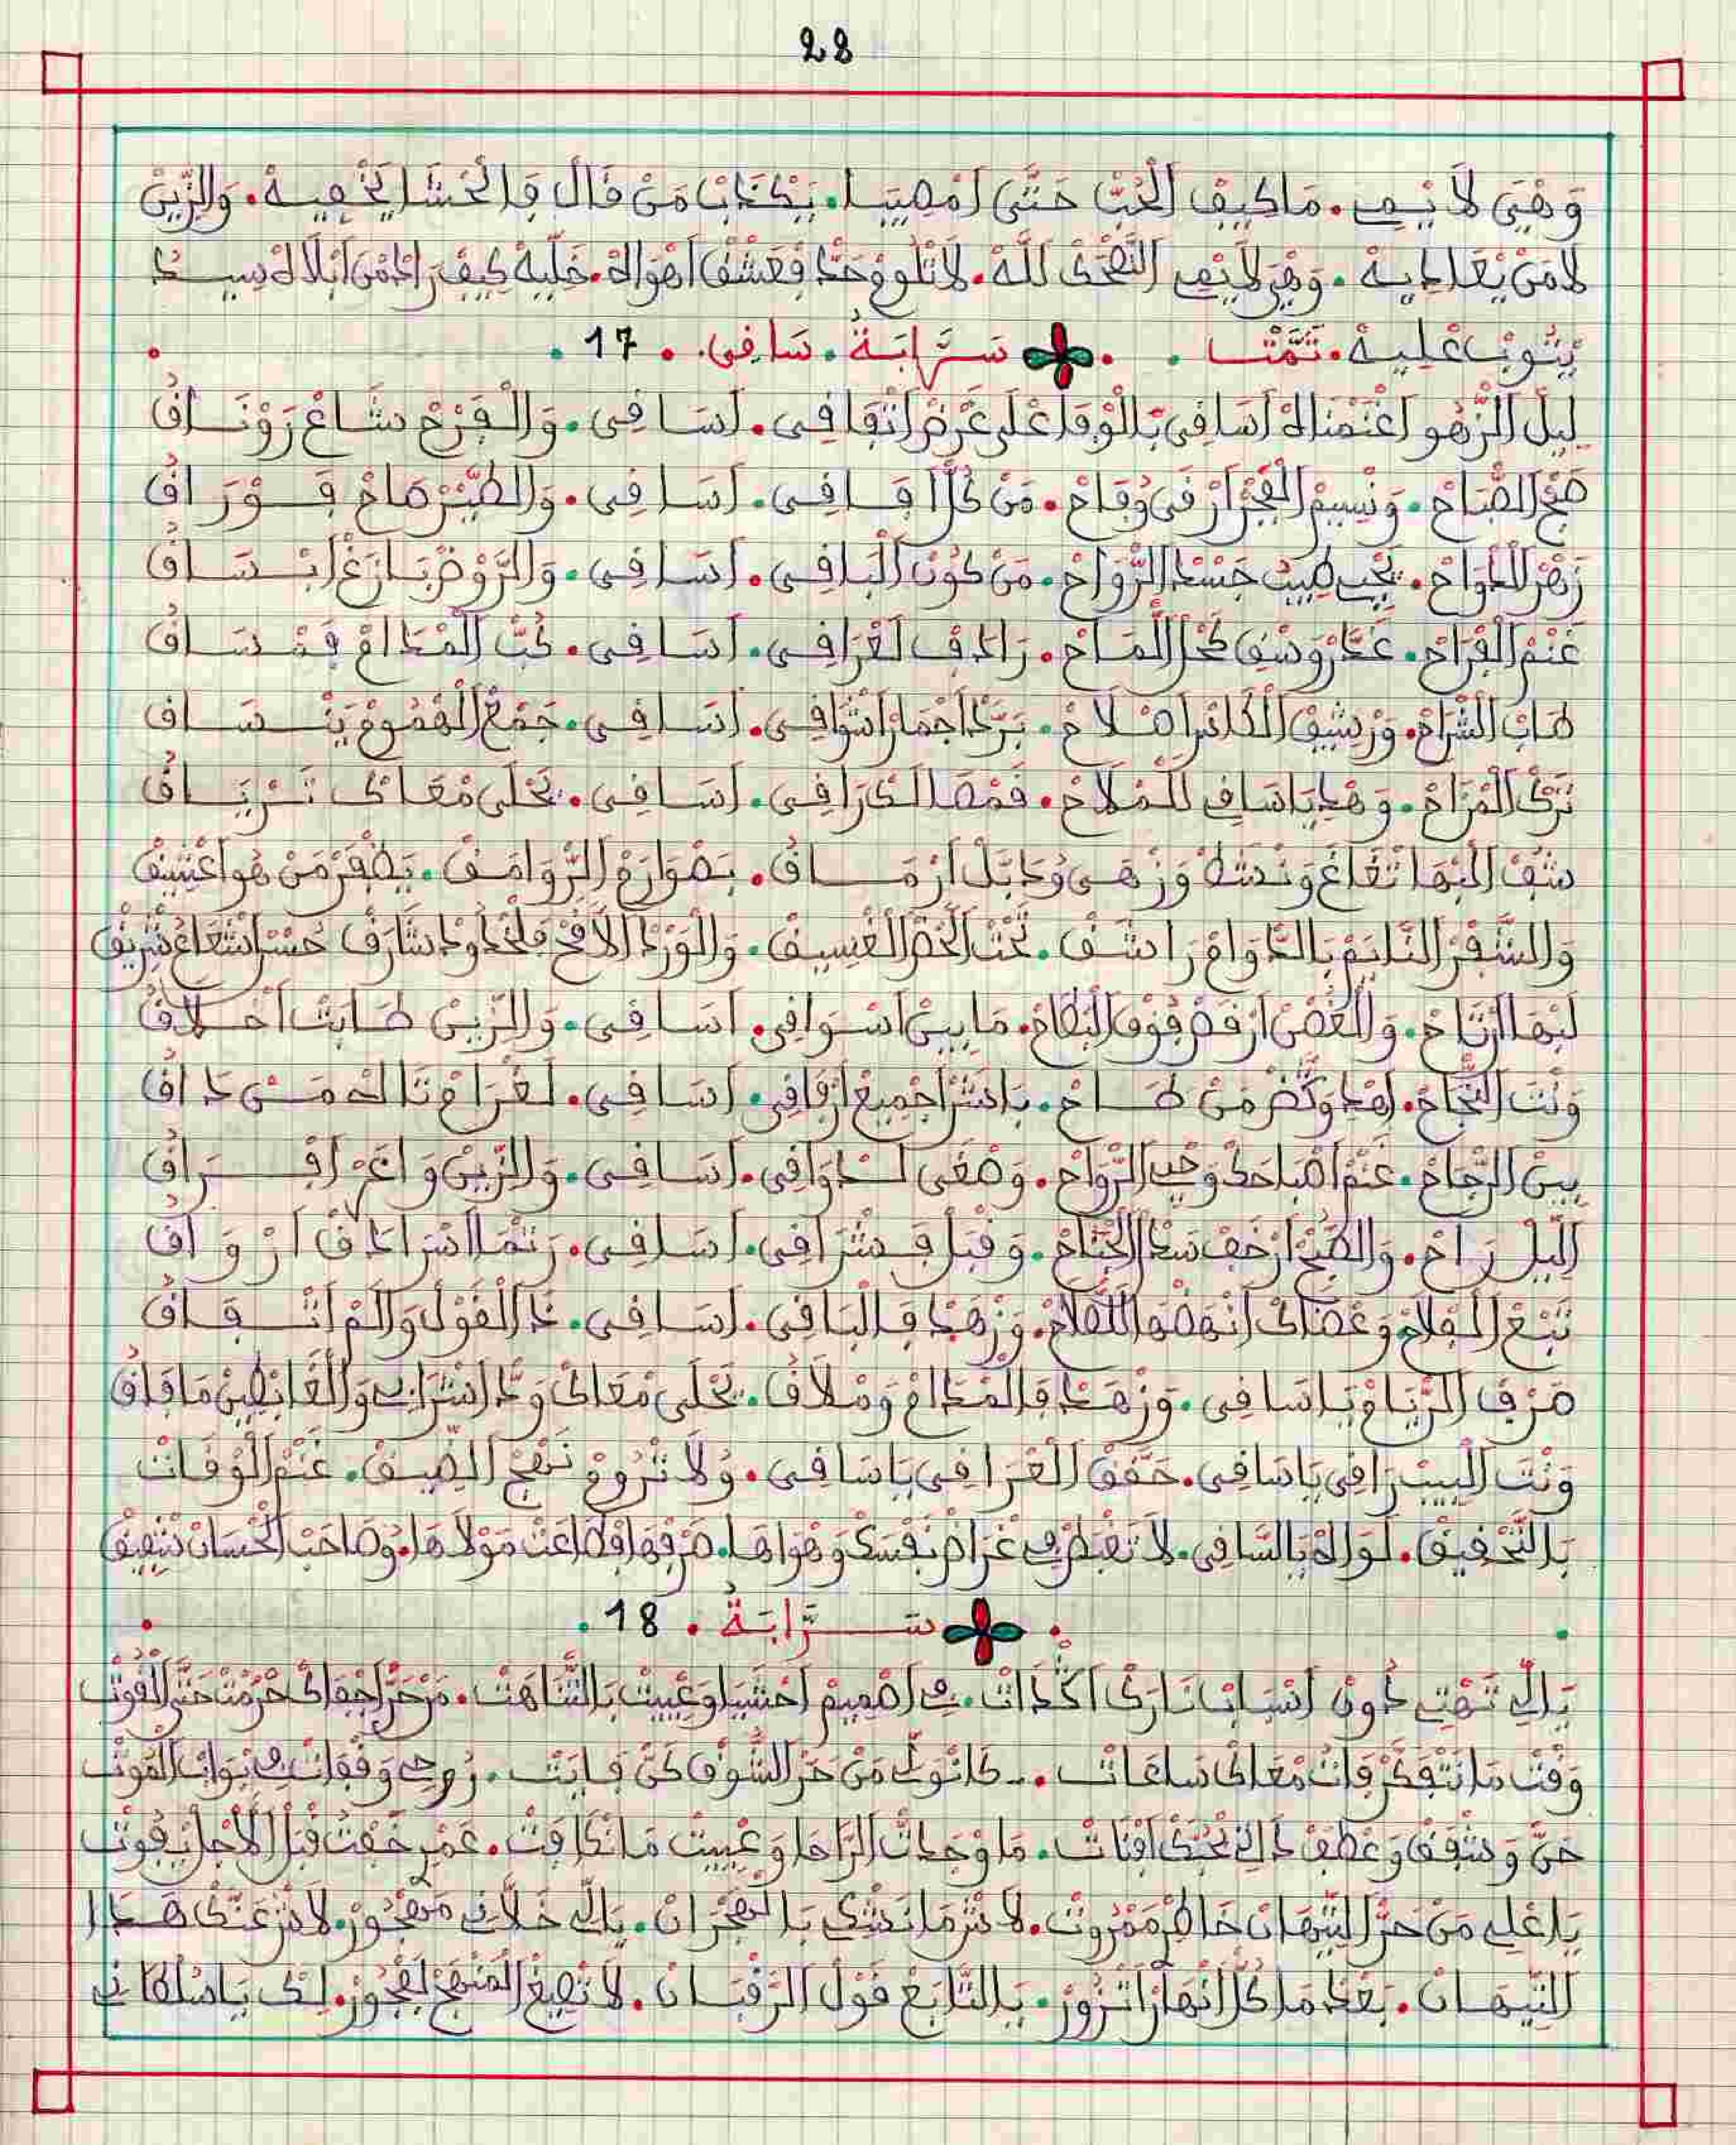 28
وَهِيَ لَا يْمِي . مَا كِيفْ الْحُبّْ حَتَّى امْصِيبَا . يَكْذَابْ مَنْ قَالْ فَالْحْشَا يَخْفِيهْ . وَالزِّينْ
لَا مَنْ يْعَادِيهْ . وَهِيَ لَا يْمِي التْصَحْنِي للَّهْ . لَا تْلُومْ وَحْدْ فَعْشْقْ اهْوَاهْ . خَلِّيهْ كِيفْ رَادْ مَنْ ابْلَاهْ سِيدُ
يْتُوبْ عْلِيهْ . تَمَّتْ . سَرَّابَةُ . سَاقِي . 17 .
لِيلْ الزّْهُو اغْتَمْنَاهْ اَسَاقِي بَالْوْفَا عْلَى عَرْضْ اتْفَاقِي . اَسَاقِي . وَالْفَرْحْ شَاعْ رَوْنَاقُ
ضَحّْ الصّْبَاحْ . وَنْسِيمْ الْفْجَرْ ارْقَى وُفَاحْ . مَنْ كُلّْ افَاقِي . اَسَاقِي . وَالطَّيْرْ صَاحْ فَوْرَاقُ
زَهْرْ اللّْوَاحْ . يَحْيِي طِيبْ جَسْدْ الرّْوَاحْ . مَنْ كُونْ الْبَاقِي . اَسَاقِي . وَالرَّوْضْ بَازَغْ ابْسَاقُ
غَنْمْ الْفْرَاحْ . عَمَّرْ وَسْقِي نَحْلْ اللّْمَاحْ . رَادَفْ لَغْرَاقِي . اَسَاقِي . كُبّْ الْمْدَامْ فَمْسَاقُ
طَابْ الشْرَاحْ . وَرْشِيقْ الْكَاسْ اصْلَاحْ . بَرَّدْ اجْمَارْ اشْوَاقِي . اَسَاقِي . جَمْعْ الْهْمُومْ يَنْسَاقُ
تَرْكْ الْمْزَاحْ . وَهْدِ يَاسَاقِي لَلْمْلَاحْ . فَمْصَا لَكْرَاقِي . اَسَاقِي . تَحْلَى مْعَاكْ تَرْيَاقُ
شُفْ الْبْهَا تْفَاغَ وَنْشَطْ وَزْهَى وُدَبَّلْ ارْمَاقُ . بَصْوَارَمْ الرّْوَامَقْ . يَظْفَرْ مَنْ هُو اعْشِيقْ
وَالشّْفَرْ النَّايَمْ بَالدّْوَامْ رَاشَقْ . تَحْتْ الْحْضْ الْغْسِيقْ . وَالْوَرْدْ الَافَحْ فَلْخْدُودْ شَارَقْ حُسْنْ اشْعَاعُ شْرِيقْ
لَبْهَا ارْتَاحْ . وَالْغْصَنْ ارْقَصْ فُوقْ الْبْطَاحْ . مَابِينْ اسْوَاقِي . اَسَاقِي . وَالزِّينْ طَابَتْ اخْلَاقُ
وَنْتَ النّْجَاحْ . اهْدِ وَنْظَرْ مَنْ طَاحْ . بَاشَرْ اجْمِيعْ ارْفَاقِي . اَسَاقِي . لَغْرَامْ نَالْهْ مَنْ دَاقُ
بِينْ الرّْجَاحْ . غَنْمْ اصْبَاحَكْ وَحْيِي الرّْوَاحْ . وَصْغَى لَدْوَاقِي . اَسَاقِي . وَالزِّينْ وَاعَرْ افْرَاقُ
اللِّيلْ رَاحْ . وَالصّْبْحْ ارْخَفْ سَدْلْ الْجْنَاحْ . وَقْبَلْ فَشْرَاقِي . اَسَاقِي . رَتْمَا اسْرَادَقْ ارْوَاقُ
تَبْعْ الْفْلَاحْ وَعْضَاكْ انْهَضْهَا اللّْقَاحْ . وَزْهَدْ فَالْبَاقِي . اَسَاقِي . دَ الْقَوْلْ وَالَمْ انْفَاقُ
صَرْفْ الزّْيَامْ يَاسَاقِي . وَزْهَدْ فَالْمْدَامْ وَسْلَاقُ . تَحْلَى مْعَاكْ وَدّْ اشْرَابِي وَالْغَايْظِينْ مَا فَاقُ
وَنْتَ الْبِيبْ رَاقِي يَاسَاقِي . حَقَّقْ الْعْرَاقِي يَاسَاقِي . وُلَا تْرُومْ نَهْجْ الضِّيقْ . غَنْمْ الْوْقَاتْ
بَالتَّحْقِيقْ . لَوَّاهْ يَالسَّاقِي . لَا تَفْبَطْشِي غْرَاضْ نَفْسَكْ وَهْوَاهَا . صَرَّفْهَا فْطَاعَتْ مَوْلَاهَا . وُصَاحَبْ الْحْسَانْ تْفِيقْ
. سَرَّابَةُ . 18 .
يَالِّي تَهْتِ دُونْ اسْبَابْ نَارَكْ اكْدَاتْ . فِي اصْمِيمْ احْشَايَا وَعْيِيتْ بَالتّْنَاهَتْ . مَنْ حَرّْ اجْفَاكْ حَرْمَتْ حَتَّى الْقُوتْ
وَقْتْ مَا نَتْفَكَّرْ فَاتْ مْعَاكْ سَاعَاتْ . كَانْوَلِّي مَنْ حَرّْ الشُّوقْ كَنْ فَايَتْ . رُوحِي وَقْفَاتْ فِي بْوَابْ الْمُوتْ
حَنّْ وَشْفَقْ وَعْطَفْ دَالِّي بْحُبَّكْ افْنَاتْ . مَا وْجَدَاتْ الرَّاحَا وَعْيِيتْ مَا نْكَافَتْ . عَمْرِي خَفْتُ قْبَلْ الْأْجَلْ يْفُوتْ
يَاعْلِي مَنْ حَرّْ التِّيهَانْ خَاطْرِي مَمْرُوتْ . لَاشْ مَا نَشْكِي بَالْهَجْرَانْ . يَالِّي خَلَّانِي مَهْجُورْ . لَاشْ عَنَّكْ هَدَا
التِّيهَانْ . بَعْدْ مَا كُلّْ انْهَارْ اتْزُورْ . يَالتَّابَعْ قَوْلْ الرّْقْبَانْ . لَا تْصِيغْ الْمَنْهَجْ لَفْجُورْ . لَكْ يَاسُلْطَانِي